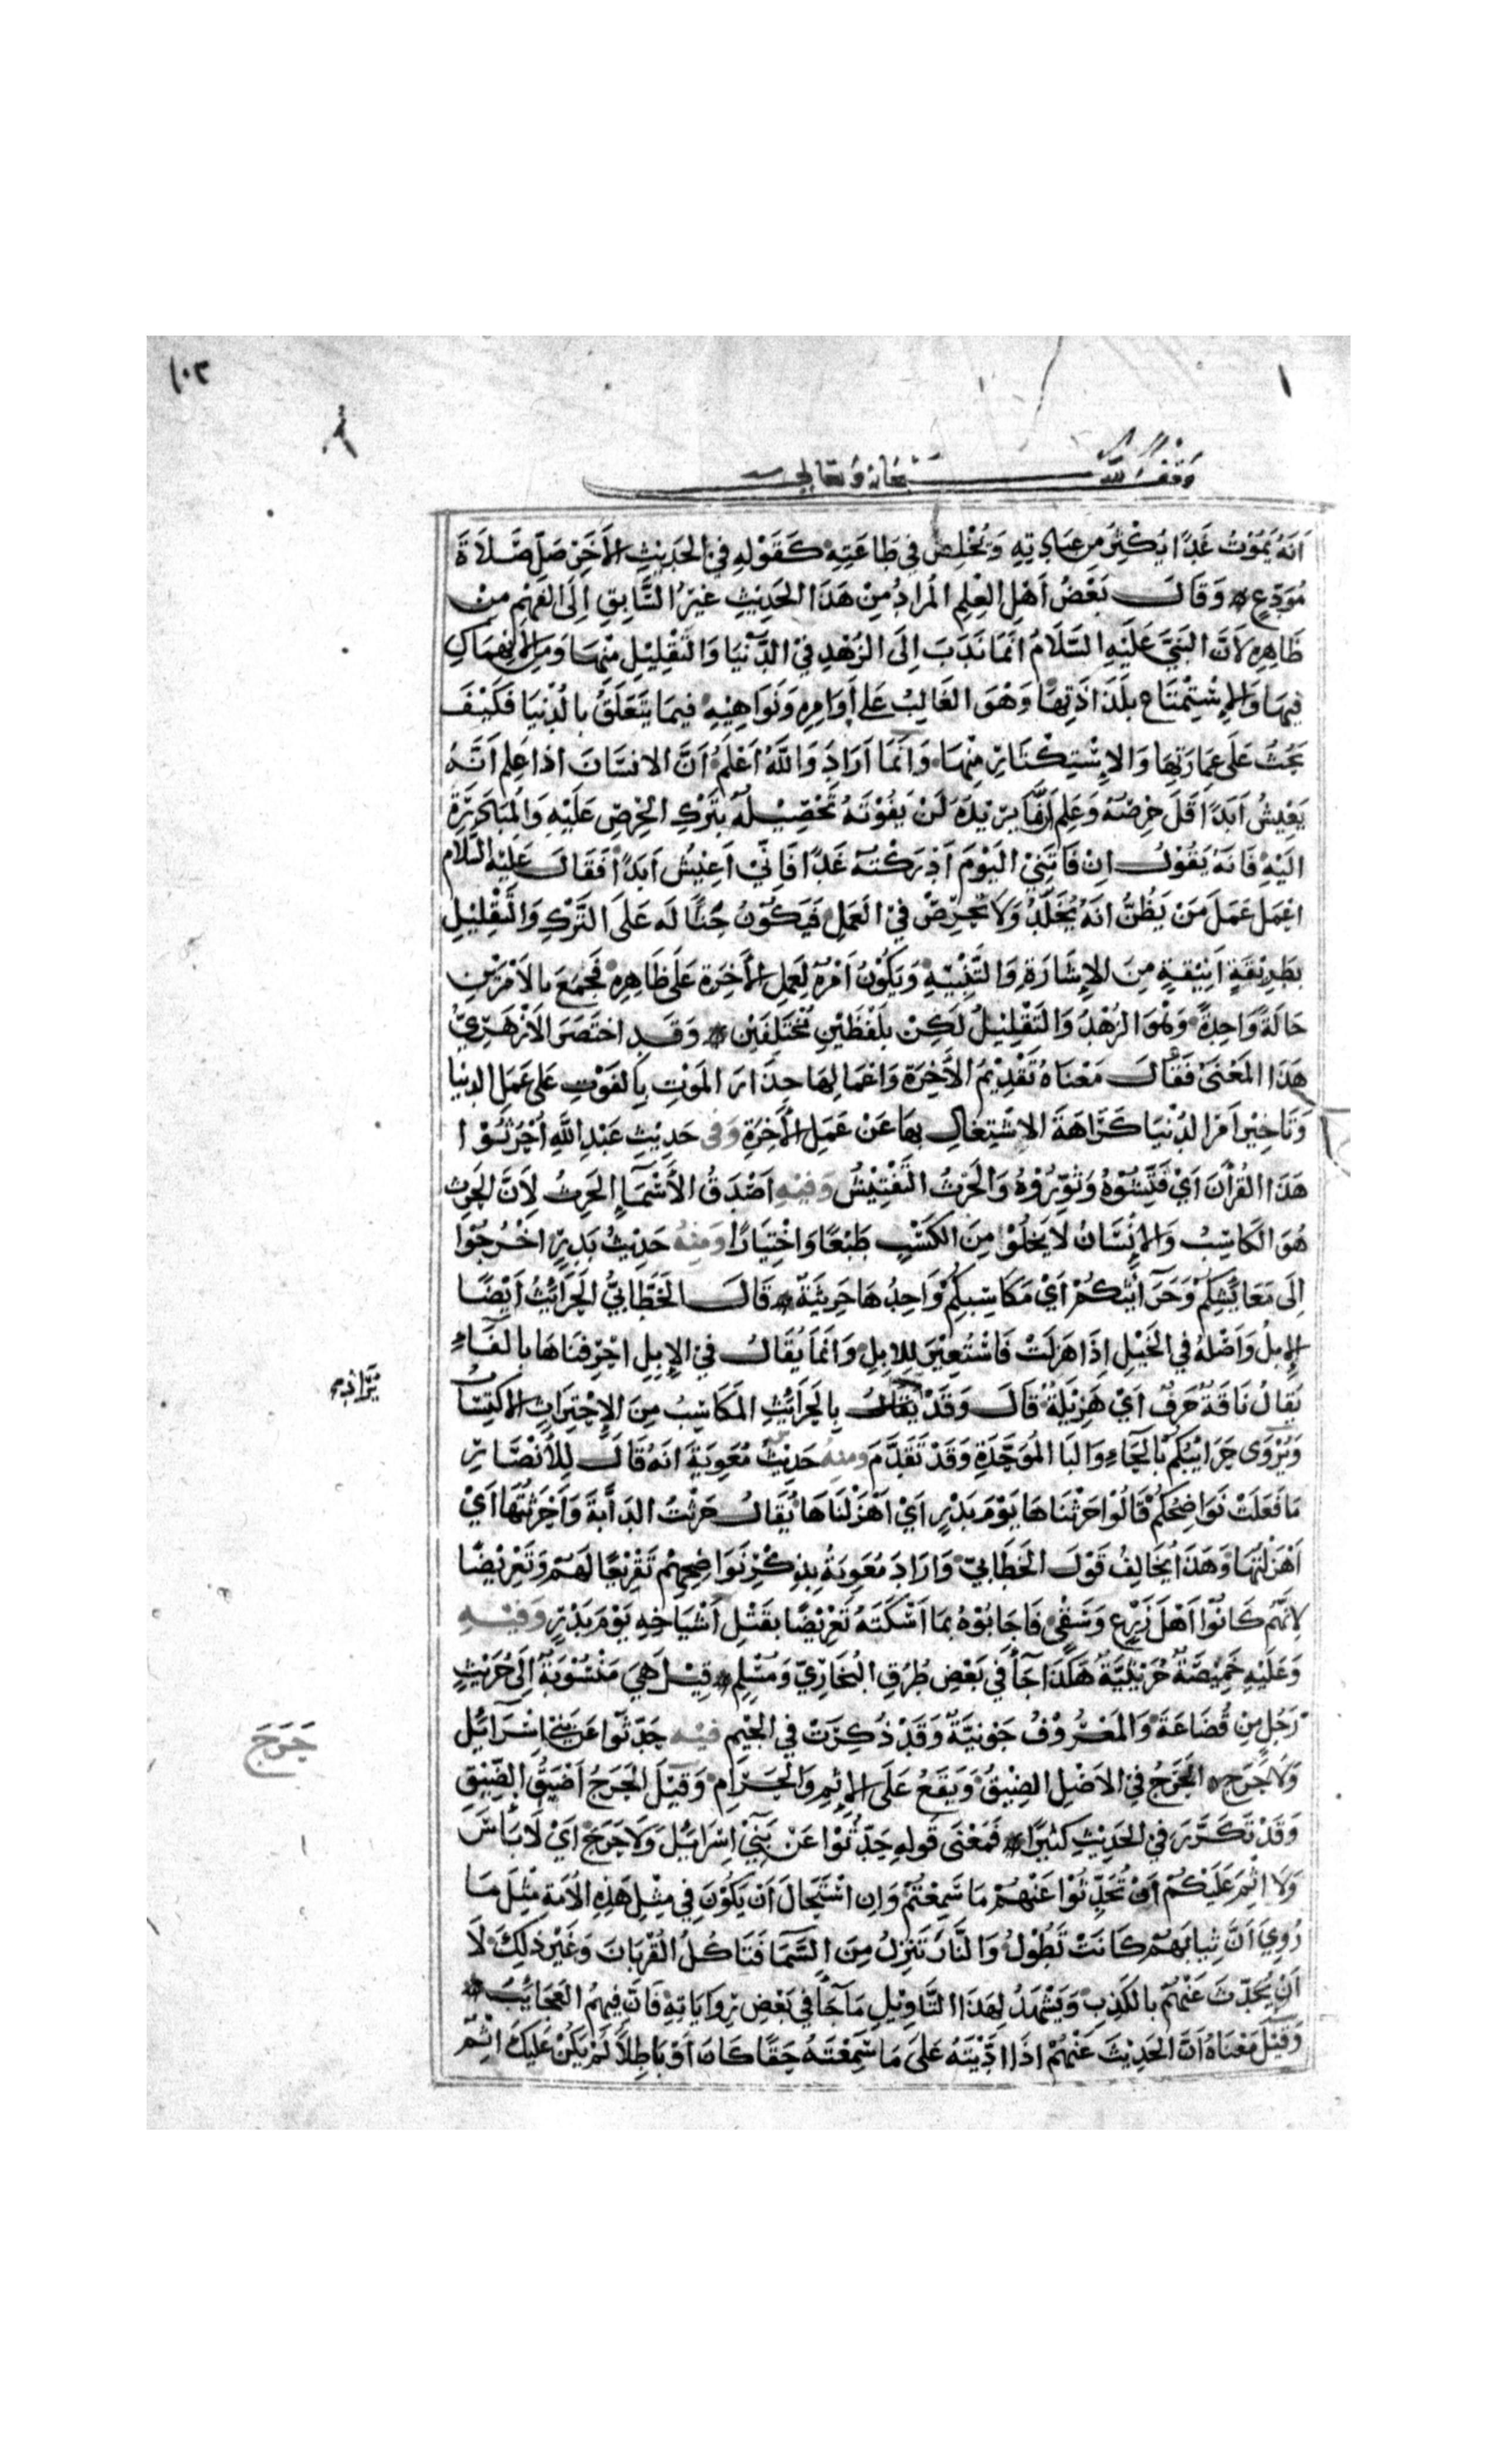 ١٠٣
وقف لله سبحانه وتعالى
اَنَّهُ يَمُوْتُ غَدًا يُكْثِرُ مِن عِبَادِتِهِ وَيُخْلِصُ فِي طَاعَتِهِ كَقَوْلِهِ فِي الحَدِيْثِ الأَخَرِ صَلِّ صَلَاةَ
مُوَدِّعٍ وَقَالَ بَعْضُ اَهْلِ العِلْمِ المُرادُ مِنْ هَذَا الحَدِيْثِ غَيْرُ السَّابِقِ اِلَى الفَهْمِ مِنْ
ظَاهِرِهِ لاَنَّ النَبيَّ عَلَيْهِ السَّلَامُ انَّمَا نَدَبَ اِلَى الزُهْدِ فِيْ الدُّنْيَا وَالتَّقْلِيْلِ مِنْهَا وَمِنَ الاِنْهِمَاكِ
فِيهَا وَالاِسْتِمْتَاعِ بلَذَاذَتِهَا وَهْوَ الغَالِبُ عَلى أَوَامِرِهِ وَنَوَاهِيْهِ فيمَا يَتَعَلَّقُ بالدُنْيَا فَكَيْفَ
يَحُثُّ عَلَى عِمَارَتِهَا وَالاِسْتِكْثَارِ مِنْهَا وَانَّمَا اَرَادَ وَاللَّهُ اَعْلَمُ اَنَّ الانسَانَ اذا عَلِم اَنَّهُ
يَعِيْشُ اَبَدًا قَلَّ حِرْصُهُ وَعَلِمَ اَنَّ مَا يرِيْدُهُ لَنْ يَفُوْتَهُ تَحْصِيْلُهُ بتَرْكِ الحِرْصِ عَلَيْهِ وَالمُبَادَرَةِ
اليْهِ فَانَّهُ يَقُوْلُ اِنْ فَاتَنِيْ اليَوْمَ اَدْرَكْتُهُ غَدًا فَاِنِّيْ اَعِيْشُ اَبَدًا فَقَالَ عَلَيْهِ السَّلَام
اعْمَلْ عَمَلَ مَنْ يَظُنُّ انَّهُ يُخَلَّدُ وَلَا تَحْرِصْ فِيْ العَمَلِ فَيَكُوْنُ حَثًّا لَه عَلَى التَّرْكِ وَالتَّقْلِيْلِ
بطَرِيْقَةٍ اَنِيْقَةٍ مِنَ الإِشَارَةِ وَالتَّنْبِيْهِ وَيَكُوْنُ اَمْرُهُ لِعَمَلِ الأَخِرَةِ عَلَى ظَاهِرِهِ فَجَمَعَ بالاَمْرَيْنِ
حَالَةً وَاحِدَةً وَهْوَ الزُهْدُ وَالتَقْلِيْلُ لَكِنْ بلَفْظَيْنِ مُخْتَلِفَيْنِ وَقَدِ اخْتَصَرَ الاَزْهَرِيُّ
هَذَا المَعْنَى فَقَالَ مَعْنَاهُ تَقْدِيْمُ الأَخِرَةِ وَاعْمَالِهَا حِذَارَ المَوْتِ بالفَوْتِ عَلى عَمَلِ الدنْيَا
وَتَاخِيْر اَمْرِ الدُنْيَا كَرَاهَةَ الاِشْتِغَالِ بهَا عَنْ عَمَلِ الأَخِرَةِ وَفى حَدِيْثِ عَبْدِ اللَّهِ اُحْرُثُوْا
هَذَا القُرْأَنَ اَيْ فَتِّشُوْهُ وَثَوِّرُوْهُ وَالحَرْثُ التَّفْتِيْشُ وَفِيْهِ اَصْدَقُ الأَسْمَاءِ الحَرِثُ لِاَنَّ الحَرِثَ
هُوَ الكَاسِبُ وَالاِنْسَانُ لا يَخْلُوْ مِنَ الكَسْبِ طَبْعًا وَاخْتِيَارًا وَمِنْهُ حَدِيْثُ بَدِرٍ اخْرُجُوْا
اِلَى مَعَايشِكُمْ وَحَرَايثِكُمْ اَيْ مَكَاسِبِكُمْ وَاحِدُهَا حَرِيْثَةٌ قَالَ الخَطَّابِيُّ الحَرَائِثُ اَيْضًا
الإِبلُ وَاَصْلُهُ فِي الخَيْلِ اِذَا هَزلَتْ فَاسْتُعِيْرَ لِلابِلِ وَانَّمَا يُقَالُ في الاِبِلِ احْرَفْنَاهَا بالفَاءِ
يُقَالُ نَاقَةٌ حَرَفٌ اَيْ هَزِيْلَةٌ قَالَ وَقَدْ يُقَالُ بِالحَرَائِثِ المَكَاسِبُ مِنَ الاِحْتِرَاثِ الاكْتِسَابُ
وَيُرْوَى حَرَايْبُكُمْ بالحَاءِ وَالبَا المُوَحَّدَةِ وَقَدْ تَقَدَّمَ وَمِنْهُ حَدِيْثُ مُعَوِيَةَ انَّهُ قَالَ لِلأَنْصَارِ
مَا فَعَلَتْ نَوَاضِحُكُمْ قَالُوْا حَرَثْنَاهَا يَوْمَ بَدْرٍ اَيْ اَهْزَلْنَاهَا يُقَالُ حَرَثْتُ الدَابَّةَ وَاَحْرَثْتُهَا اَيْ
اَهْزَلْتُهَا وَهَذَا يُخَالِفُ قَوْلَ الخَطَّابيّ وَارَادَ مُعَوِيَةُ بذِكْرِ نَوَاضِحِهِمْ تَقْرِيْعًا لَهُمْ وَتَعْرِيْضًا
لِاَنَّهُمْ كَانُوْا اَهْلَ زَرْعٍ وَسَقْيٍ فَاجَابُوْهُ بمَا اَسْكَتَهُ تَعْرِيْضًا بقَتْلِ اَشْيَاخِهِ يَوْمَ بَدْرٍ وَفِيْهِ
وَعَلَيْهِ خَمِيْصَةٌ حُرَيْثِيَّةٌ هَكَذَا جَآَ فِي بَعْضِ طُرُقِ البُخَارِيّ وَمُسْلِمٍ قِيْلَ هِيَ مَنْسُوْبَةٌ اِلَى حُرَيْثٍ
رَجُلٍ مِن قُضَاعَةَ وَالمَعْرُوْفُ جَوْنِيَّةٌ وَقَدْ ذُكِرَتْ فِي الجِيْمِ فيْهِ حَدِّثُوْا عَن بَنِي اسْرَايْل
وَلَا حَرَجَ الحَرَجُ فِي الاَصْلِ الضِيْقُ وَيَقَعُ عَلَى الاِثْمِ وَالحَرَامِ وَقِيْلَ الحَرَجُ اَضْيَقُ الضِيْقِ
وَقَدْ تَكَرَّرَ فِي الحَدِيْثِ كَثِيْرًا فَمَعْنَى قَوْلِهِ حَدِّثُوْا عَنْ بَنِيْ اِسْرَايْلَ وَلَا حَرَجَ اَيْ لَا بَاسَ
وَلَا اِثْمَ عَلَيْكُمْ اَنْ تُحَدِّثُوْا عَنْهُمْ مَا سَمِعْتُمْ وَاِنِ اسْتَحَالَ اَنْ يَكُوْنَ فِي مِثْلِ هَذِهِ الأُمَّةِ مِثْلَ مَا
رُوِيَ اَنَّ ثِيَابَهُمْ كَانَتْ تَطُوْلُ وَالنَّارَ تَنْزِلُ مِنَ السَّمَآ فَتَاكُلُ القُرْبَانَ وَغَيْرَ ذَلِكَ لَا
اَنْ يُحَدَّثَ عَنْهُمْ بالكَذِبِ وَيَشْهَدُ لِهَذَا التَّاوِيْلِ مَا جَآَ فِي بَعْضِ رِوَايَاتِهِ فَانَّ فِيهِمُ العَجَايِبَ
وَقِيْلَ مَعْنَاهُ اَنَّ الحَدِيْثَ عَنْهُمْ اذَا ادَّيْتَهُ عَلَى مَا سَمِعْتَهُ حَقًّا كَانَ اَوْ بَاطِلًا لَمْ يَكُنْ عَلَيْكَ اثْمٌ
حَرَجَ